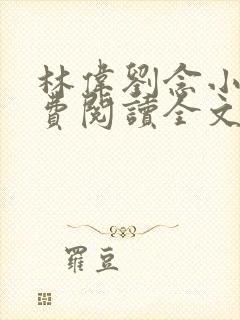 林偉劉念小
費閱讀全文
羅豆